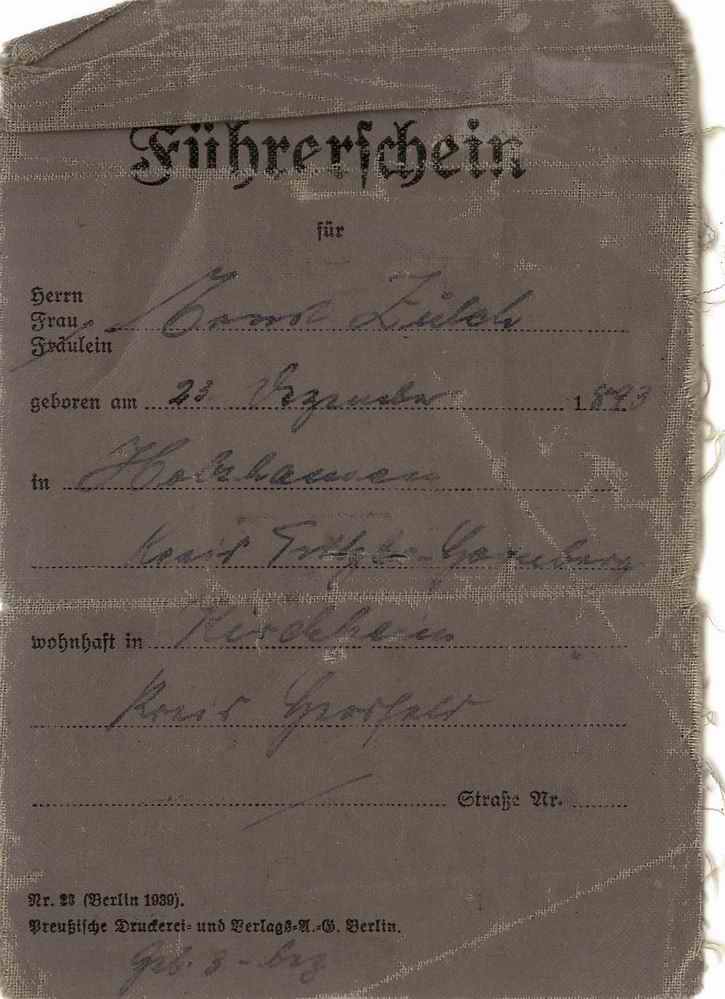 Führerschein
für
Herrn
Frau
Fräulein
Zülch
geboren am 23 Dezember 1893
in Holzhausen
Kreis Fritzlar-Homberg
wohnhaft in Kirchheim
Kreis Hersfeld
Straße Nr.
Nr. 23 (Berlin 1939).
Preußische Druckerei- und Verlags-A.-G. Berlin.